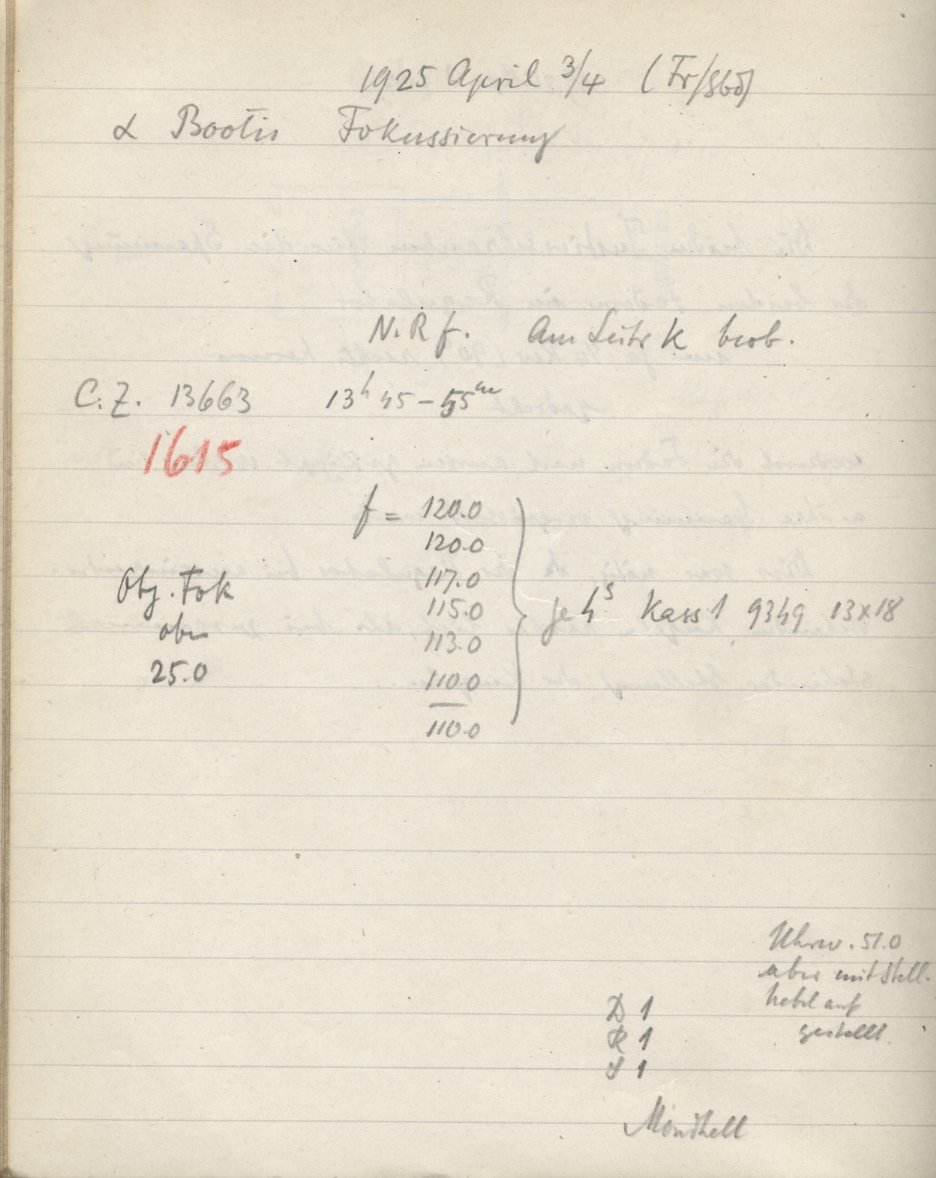 1925 April 3/4 (Fr/Sbd)
α Bootis Fokussierung
N. R f. Am Leitr K beob.
C.Z. 13663 13ʰ 45 – 55ᵐ
1615
f = 120.0
120.0
117.0
Obj. Fok
115.0
je 4ˢ Kass 1 9349 13×18
obn
113.0
25.0
110.0
110.0
Uhrw. 51.0
aber mit Stell.
hebel auf
gestellt.
D 1
R 1
S 1
Mondhell